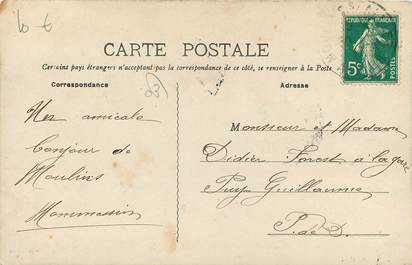 10 €
CARTE POSTALE
Certains pays étrangers n'acceptant pas la correspondance de ce côté, se renseigner à la Poste
RÉPUBLIQUE FRANÇAISE
5c
POSTES
Correspondance
03
Adresse
amicale
bonjour de
Moulins
Monsieur et Madame
Didier à la gare
Puy Guillaume
P. de D.